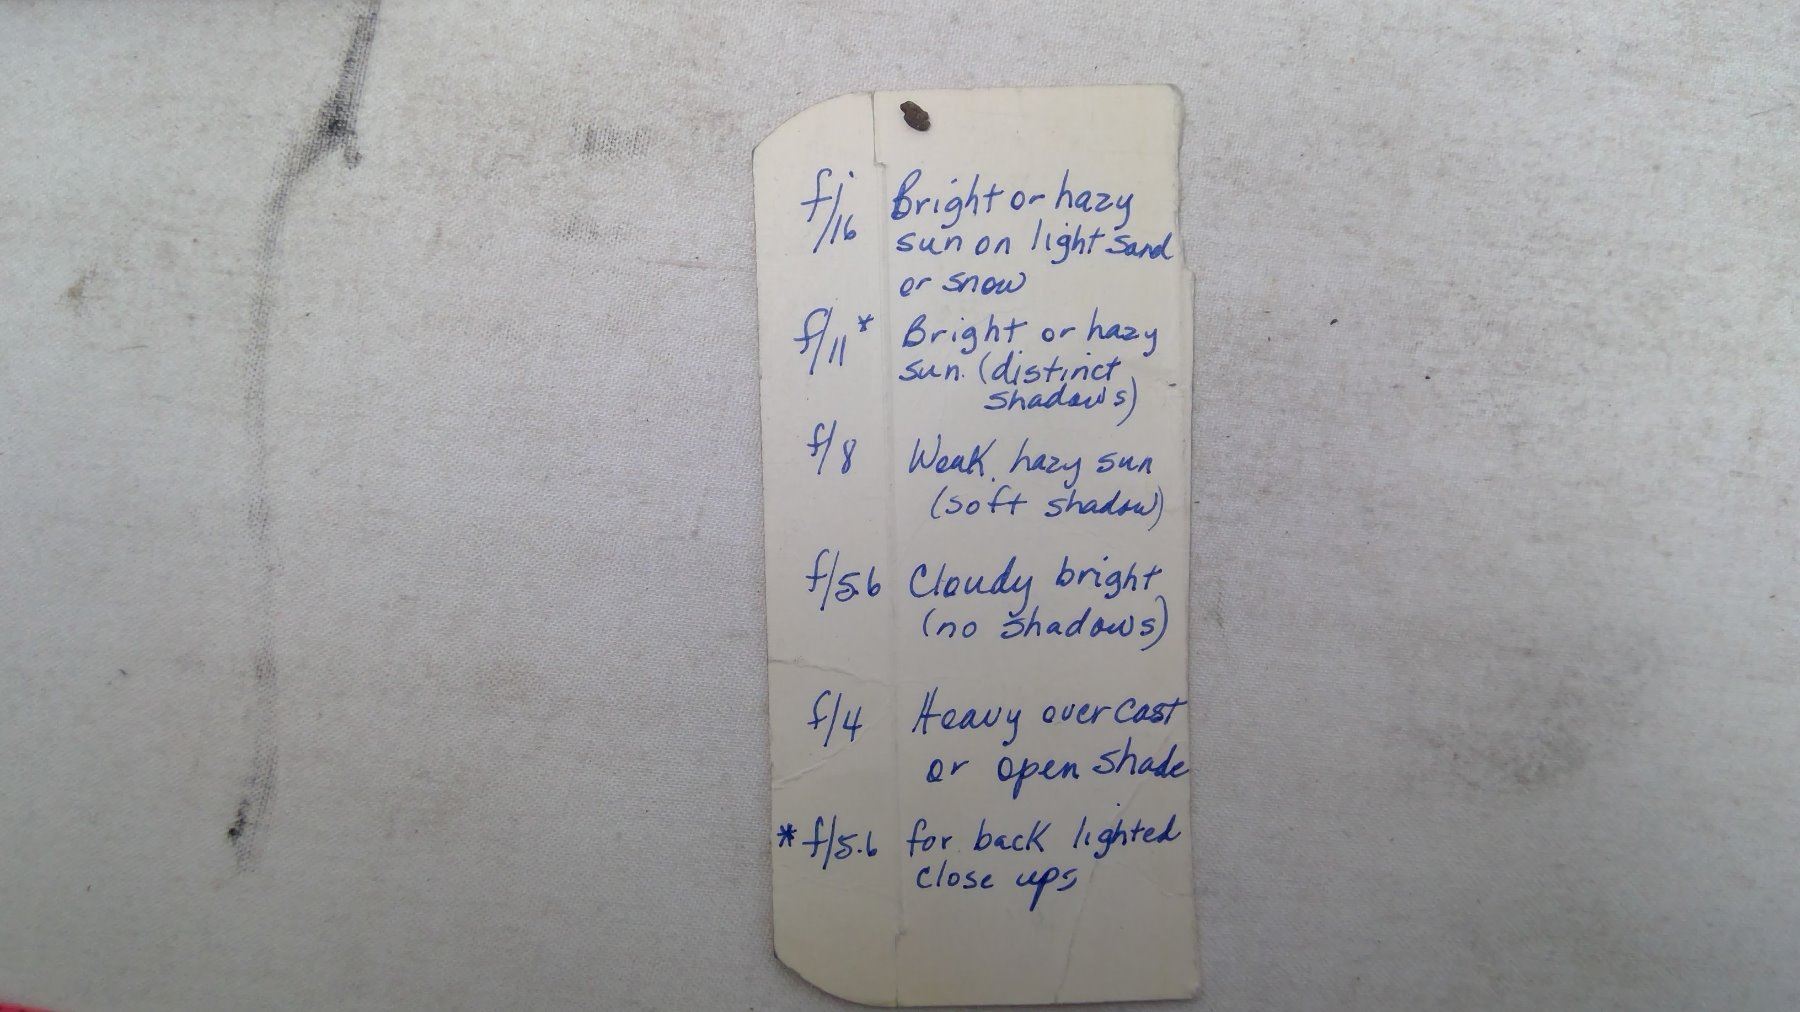 f/16 Bright or hazy
sun on light sand
or snow
f/11* Bright or hazy
sun. (distinct
shadows)
f/8 Weak, hazy sun
(soft shadow)
f/5.6 Cloudy bright
(no shadows)
f/4 Heavy over cast
or open shade
* f/5.6 for back lighted
close ups